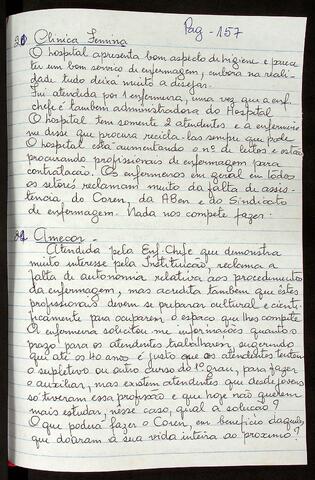 Pag - 157
20 Clínica Femina
O hospital apresenta bom aspecto de higiene e parece
ter um bom serviço de enfermagem, embora na reali-
dade tudo deixa muito a desejar.
Fui atendida por 1 enfermeira, uma vez que a enf.
chefe é também administradora do Hospital
O hospital tem somente 2 atendentes e a enfermeira
me disse que procura recicla-las sempre que pode.
O hospital está aumentando o nº de leitos e estão
procurando profissionais de enfermagem para
contratação. Os enfermeiros em geral em todos
os setores reclamam muito da falta de assis-
tência, do Coren, da ABen e do Sindicato
de enfermagem. Nada nos compete fazer.
21 Amecor -
Atendida pela Enf. Chefe que demonstra
muito interesse pela Instituição, reclama a
falta de autonomia relativa aos procedimentos
da enfermagem, mas acredita também que estes
profissionais devem se preparar cultural e cienti-
ficamente para ocuparem o espaço que lhes compete.
A enfermeira solicitou me informações quanto o
prazo para os atendentes trabalharem, sugerindo
que até os 40 anos é justo que os atendentes tentem
o supletivo ou outro curso do 1º grau, para fazer
o auxiliar, mas existem atendentes que desde jovens
só tiveram essa profissão e que hoje não querem
mais estudar, nesse caso, qual a solução?
O que poderá fazer o Coren, em benefício daqueles
que doaram a sua vida inteira ao proximo?